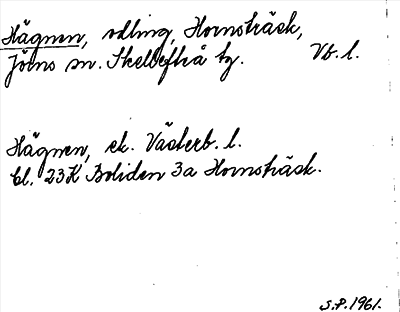 Hägnen, odling, Hornsträsk,
Jörns sn. Skellefteå tg. Vb. l.
Hägnen, ek. Västerb. l.
bl. 23K Boliden 3a Hornsträsk.
S.P. 1961.